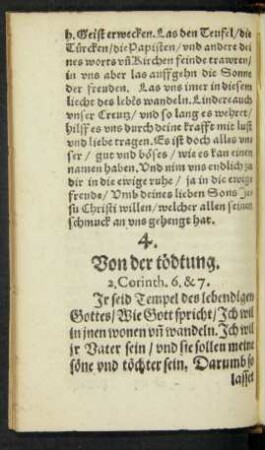 h. Geist erwecken. Las den Teufel/ die
Türcken/ die Papisten/ vnd andere dei
nes worts vñ Kirchen feinde trawren/
in vns aber las auffgehn die Sonne
der freuden. Las vns imer in diesem
liecht des lebẽs wandeln. Lindere auch
vnser Creutz/ vnd so lang es wehret/
hilff es vns durch deine krafft mit lust
vnd liebe tragen. Es ist doch alles vn
ser/ gut vnd böses/ wie es kan einen
namen haben. Vnd nim vns endlich zu
dir in die ewige ruhe/ ja in die ewige
freude/ Vmb deines lieben Sons Je
su Christi willen/ welcher allen seinen
schmuck an vns gehengt hat.
4.
Von der tödtung.
2. Corinth. 6. & 7.
Ir seid Tempel des lebendigen
Gottes/ Wie Gott spricht/ Ich wil
in jnen wonen vñ wandeln. Ich wil
jr Vater sein/ vnd sie sollen meine
söne vnd töchter sein. Darumb so
lasset